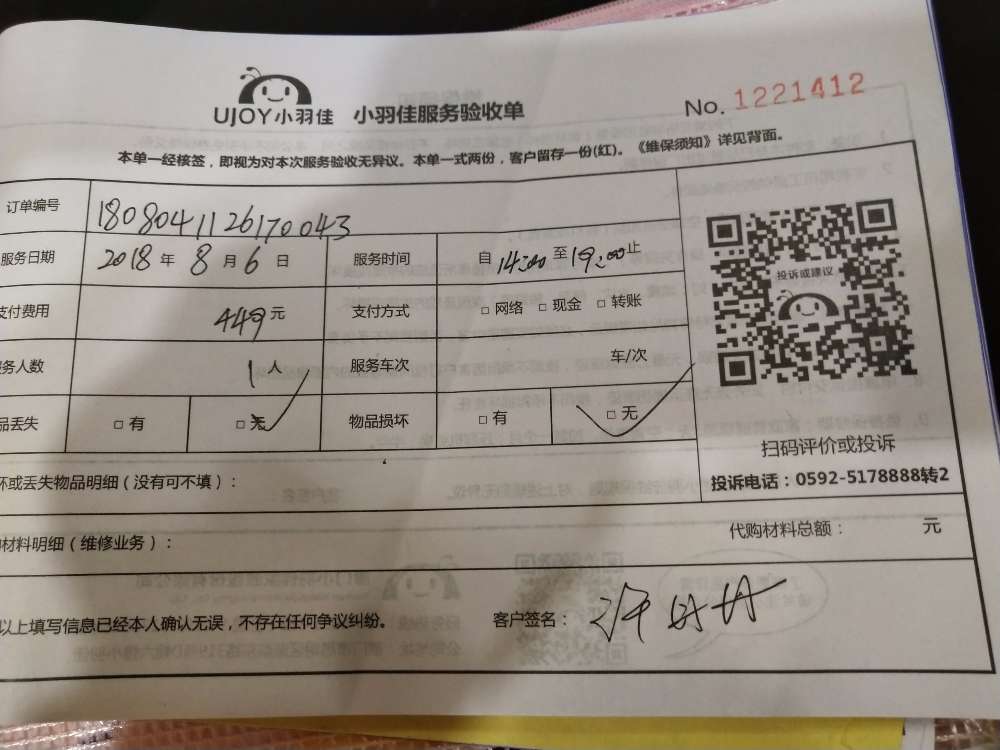 UJOY小羽佳 小羽佳服务验收单 No. 1221412
本单一经核签，即视为对本次服务验收无异议。本单一式两份，客户留存一份(红)。《维保须知》详见背面。
订单编号 1808041126170043
服务日期 2018 年 8 月 6 日 服务时间 自 14:00 至 19:00 止
支付费用 449 元 支付方式 □ 网络 □ 现金 □ 转账
务人数 1 人 服务车次 车/次
品丢失 □ 有 □ 无 物品损坏 □ 有 □ 无
投诉或建议
扫码评价或投诉
投诉电话：0592-5178888转2
坏或丢失物品明细（没有可不填）：
代购材料总额： 元
材料明细（维修业务）：
以上填写信息已经本人确认无误，不存在任何争议纠纷。 客户签名：